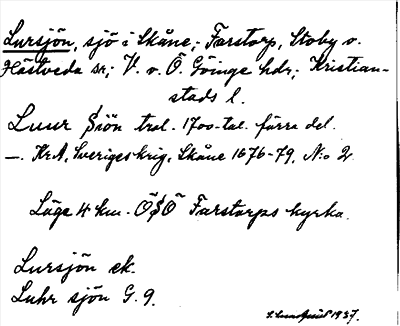 Lursjön, sjö i Skåne; Farstorp, Stoby o.
Hästveda sn; V. o. Ö. Göinge hdr; Kristian-
stads l.
Luur Siön trol. 1700-tal. förra del.
—. KrA, Sveriges krig, Skåne 1676-79, N:o 2.
Läge 4 km. ÖSÖ Farstorps kyrka.
Lursjön ek.
Luhr sjön G. 9.
S. Lundquist 1937.